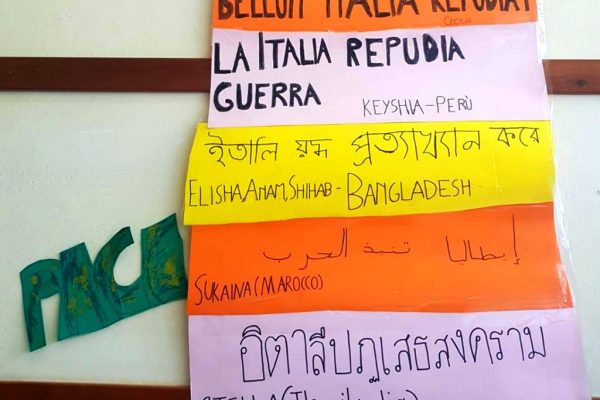 BELLUM ITALIA REPUDIAT
CECILIA
LA ITALIA REPUDIA
GUERRA
KEYSHIA-PERÙ
ইতালি য়দ্ধ প্রত্যাখ্যান করে
ELISHA, ANAM, SHIHAB - BANGLADESH
PACE
إيطاليا تنبذ الحرب
SUKAINA (MAROCCO)
อิตาลีปฏิเสธสงคราม
STELLA (Thailandia)